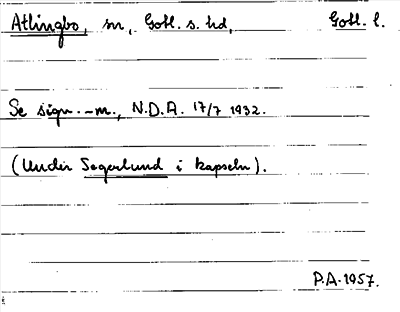 Atlingbo, sn, Gotl. s. hd, Gotl. l.
Se sign. -m., N.D.A. 17/7 1932.
(Under Segerlund i kapseln).
P.A. 1957.